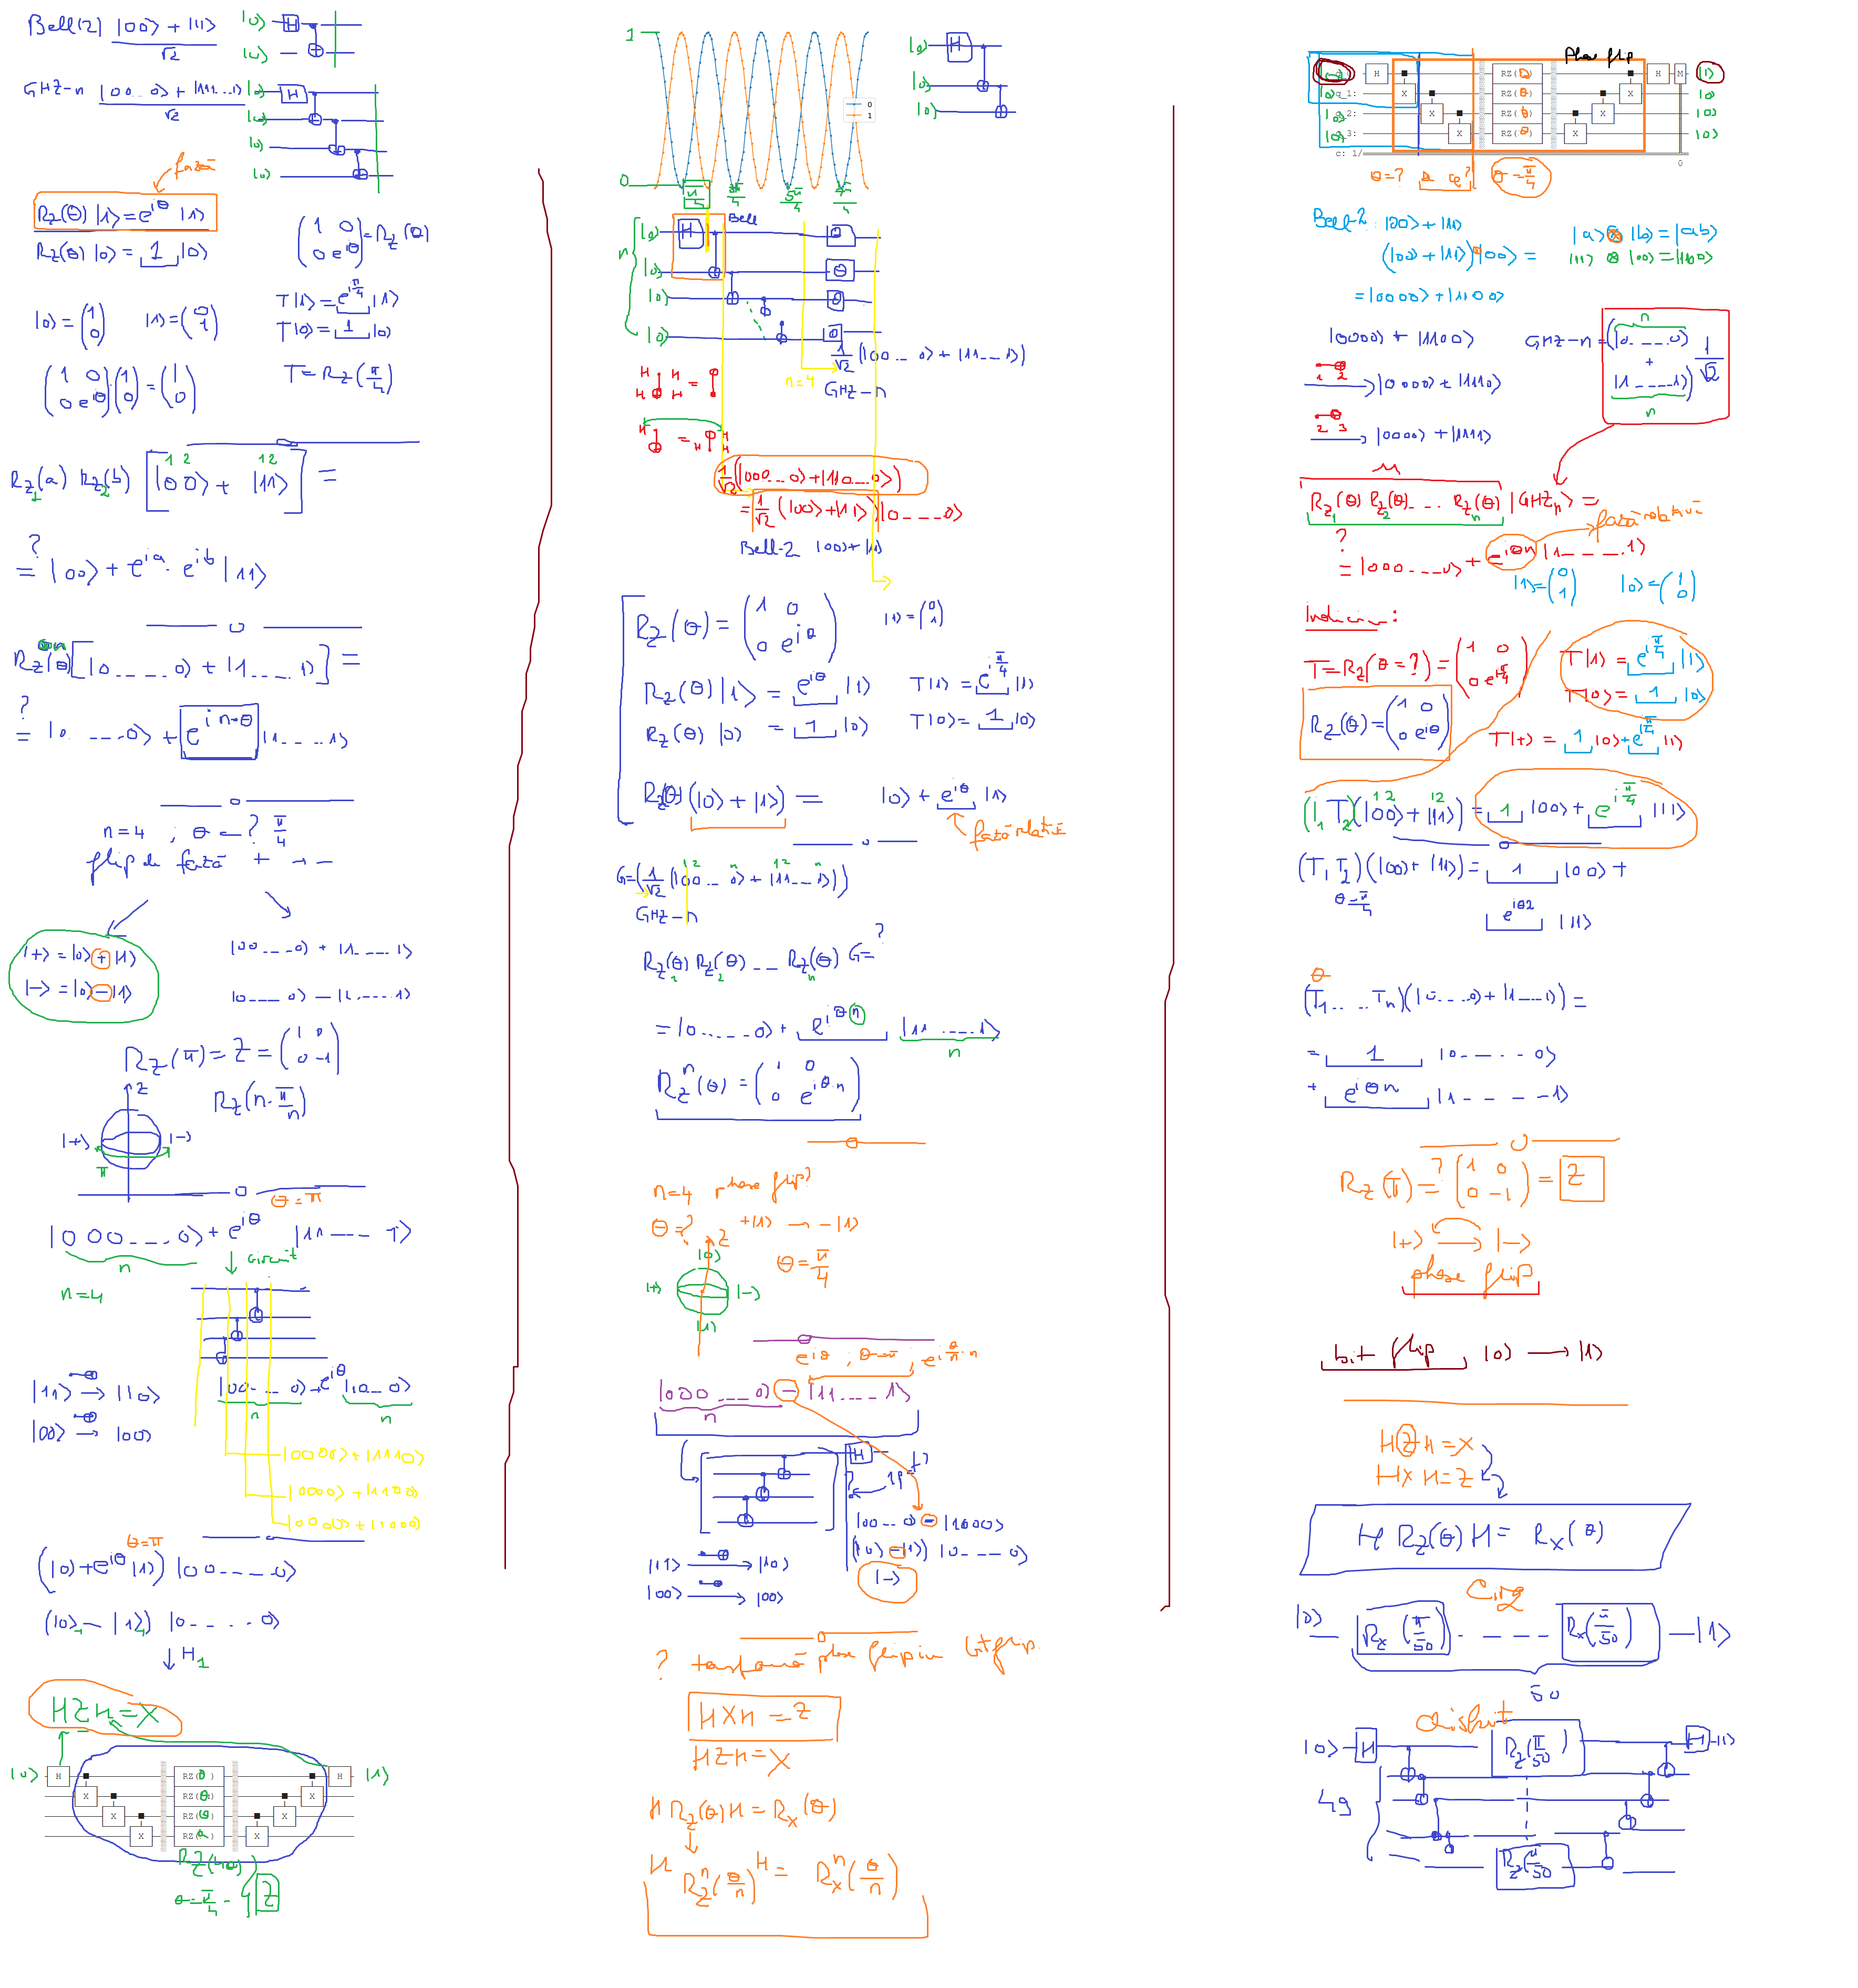 Bell(2) |00> + |11>
√2
|0> H
|0>
GHZ-n |00...0> + |111...1>
√2
|0> H
|0>
|0>
|0>
fază
Rz(θ) |1> = e^{iθ} |1>
Rz(θ) |0> = 1 |0>
(1 0 0 e^{iθ}) = Rz(θ)
|0> = (1 0) |1> = (0 1)
T|1> = e^{iπ/4} |1>
T|0> = 1 |0>
(1 0 0 e^{iθ}) (1 0) = (1 0)
T = Rz(π/4)
1 2 1 2
Rz₁(a) Rz₂(b) [|00> + |11>] =
?
= |00> + e^{ia} · e^{ib} |11>
Rz(θ)^{⊗n} [|0.....0> + |1.....1>] =
?
= |0.....0> + e^{i n·θ} |1....1>
n=4 ; θ = ? π/4
flip de fază + → -
|+> = |0> + |1>
|-> = |0> - |1>
|00....0> + |11....1>
|0....0> - |1.....1>
Rz(π) = Z = (1 0 0 -1)
Rz(n·π/n)
z
|+> |->
π
θ = π
|000....0> + e^{iθ} |11.... 1>
n
circuit
n=4
|11> → |10>
|00> → |00>
|00...0> + e^{iθ} |10...0>
n n
|0000> + |1110>
|0000> + |1100>
|0000> + |1000>
θ=π
(|0> + e^{iθ} |1>) |00....0>
(|0>₁ - |1>₁) |0.....0>
↓ H₁
HZH = X
|0> H RZ(θ) H |1>
X RZ(θ) X
X RZ(θ) X
X RZ(θ) X
Rz(4θ)
θ = π/4 - Z
1
0
1
0
π/4 3π/4 5π/4 7π/4
|0> H
|0>
|0>
Bell
n
|0> H θ
|0> θ
|0> θ
|0> θ
1/√2 (|00...0> + |11...1>)
n=4
GHZ-n
H H =
H H
H = H H
1/√2 (|000...0> + |110...0>)
= 1/√2 (|00> + |11>) |0....0>
Bell-2 |00> + |11>
Rz(θ) = (1 0 0 e^{iθ}) |1> = (0 1)
Rz(θ) |1> = e^{iθ} |1> T|1> = e^{iπ/4} |1>
Rz(θ) |0> = 1 |0> T|0> = 1 |0>
Rz(θ) (|0> + |1>) = |0> + e^{iθ} |1>
fază relativă
1 2 n 1 2 n
G = (1/√2 (|00...0> + |11...1>))
GHZ-n
?
Rz₁(θ) Rz₂(θ) ... Rzₙ(θ) G =
= |0.....0> + e^{iθn} |11....1>
n
Rz^n(θ) = (1 0 0 e^{iθ·n})
n=4 phase flip?
θ=? +|1> → -|1>
z
|0>
θ = π/4
|+> |->
|1>
e^{iθ} ; θ=π ; e^{i θ/n ·n}
|000....0> - |11.....1>
n
H
|00...0> - |1000>
(|0> - |1>) |0....0>
|->
|11> → |10>
|00> → |00>
? phase flip in bit flip
HXH = Z
HZH = X
H Rz(θ) H = Rx(θ)
↓
H Rz^n(θ/n) H = Rx^n(θ/n)
Phase flip
H RZ(θ) H M |1>
|0> q_1: X RZ(θ) X |0>
|0> 2: X RZ(θ) X |0>
|0> 3: X RZ(θ) X |0>
c: 1/ 0
θ=? θ=π/4
Bell-2: |00> + |11>
(|00> + |11>) ⊗ |00> =
|a> ⊗ |b> = |ab>
|11> ⊗ |00> = |1100>
= |0000> + |1100>
|0000> + |1100>
1 2
→ |0000> + |1110>
2 3
→ |0000> + |1111>
GHZ-n = (|0.....0> + |1....1>) 1/√2
n
n
n
Rz₁(θ) Rz₂(θ) .... Rzₙ(θ) |GHZₙ> =
fază relativă
?
= |000....0> + e^{iθn} |1....1>
|1> = (0 1) |0> = (1 0)
Indiciu:
T = Rz(θ=?) = (1 0 0 e^{iπ/4})
T|1> = e^{iπ/4} |1>
T|0> = 1 |0>
Rz(θ) = (1 0 0 e^{iθ})
T|+> = 1 |0> + e^{iπ/4} |1>
1 2 1 2
(I₁ T₂) (|00> + |11>) = 1 |00> + e^{iπ/4} |11>
(T₁ T₂) (|00> + |11>) = 1 |00> +
θ=π/4
e^{iθ2} |11>
θ
(T₁ .... Tₙ) (|0....0> + |1...1>) =
= 1 |0.....0>
+ e^{iθn} |1.....1>
Rz(π) =? (1 0 0 -1) = Z
|+> → |->
phase flip
bit flip |0> → |1>
HZH = X
HXH = Z
H Rz(θ) H = Rx(θ)
Cirq
|0> Rx(π/50) ---- Rx(π/50) |1>
50
Qiskit
|0> H Rz(π/50) H |1>
49
Rz(π/50)